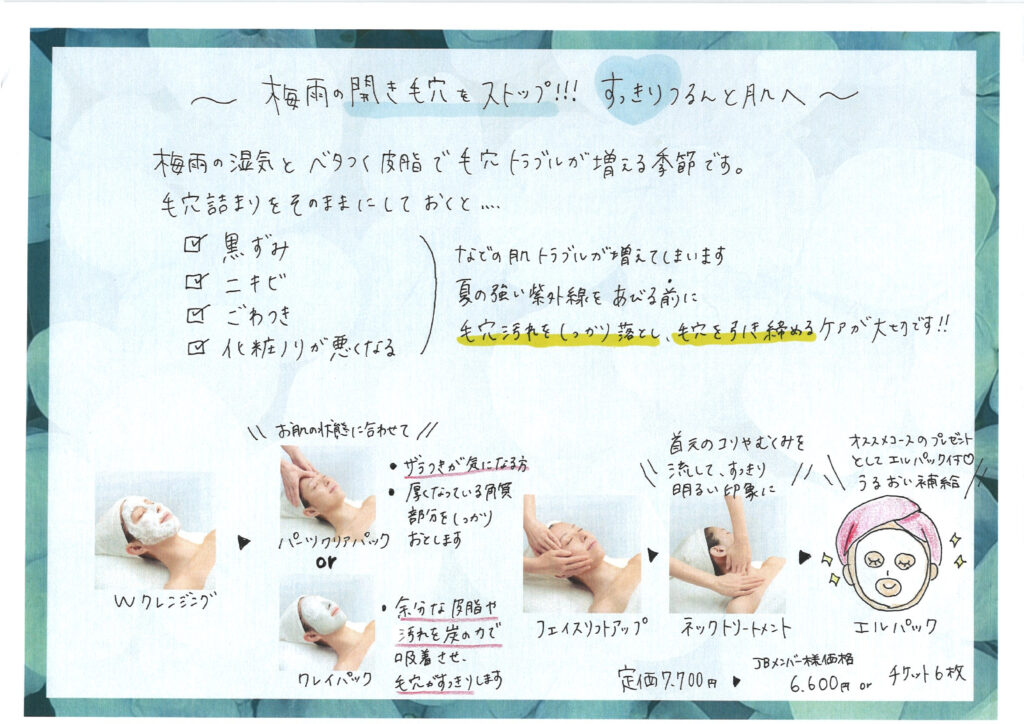 ～ 梅雨の開き毛穴をストップ!!! すっきりつるんと肌へ ～
梅雨の湿気とベタつく皮脂で毛穴トラブルが増える季節です。
毛穴詰まりをそのままにしておくと....
☑ 黒ずみ
☑ ニキビ
☑ ごわつき
☑ 化粧ノリが悪くなる
などの肌トラブルが増えてしまいます
夏の強い紫外線をあびる前に
毛穴汚れをしっかり落とし、毛穴を引き締めるケアが大切です!!
Wクレンジング
\\ お肌の状態に合わせて //
パーツクリアパック
• ザラつきが気になる方
• 厚くなっている角質
部分をしっかり
おとします
or
クレイパック
• 余分な皮脂や
汚れを炭の力で
吸着させ、
毛穴がすっきりします
フェイスリフトアップ
首元のコリやむくみを
流して、すっきり
明るい印象に
ネックトリートメント
オススメコースのプレゼント
としてエルパック付♡
うるおい補給
エルパック
定価7.700円 ▶
JBメンバー様価格
6.600円 or チケット6枚